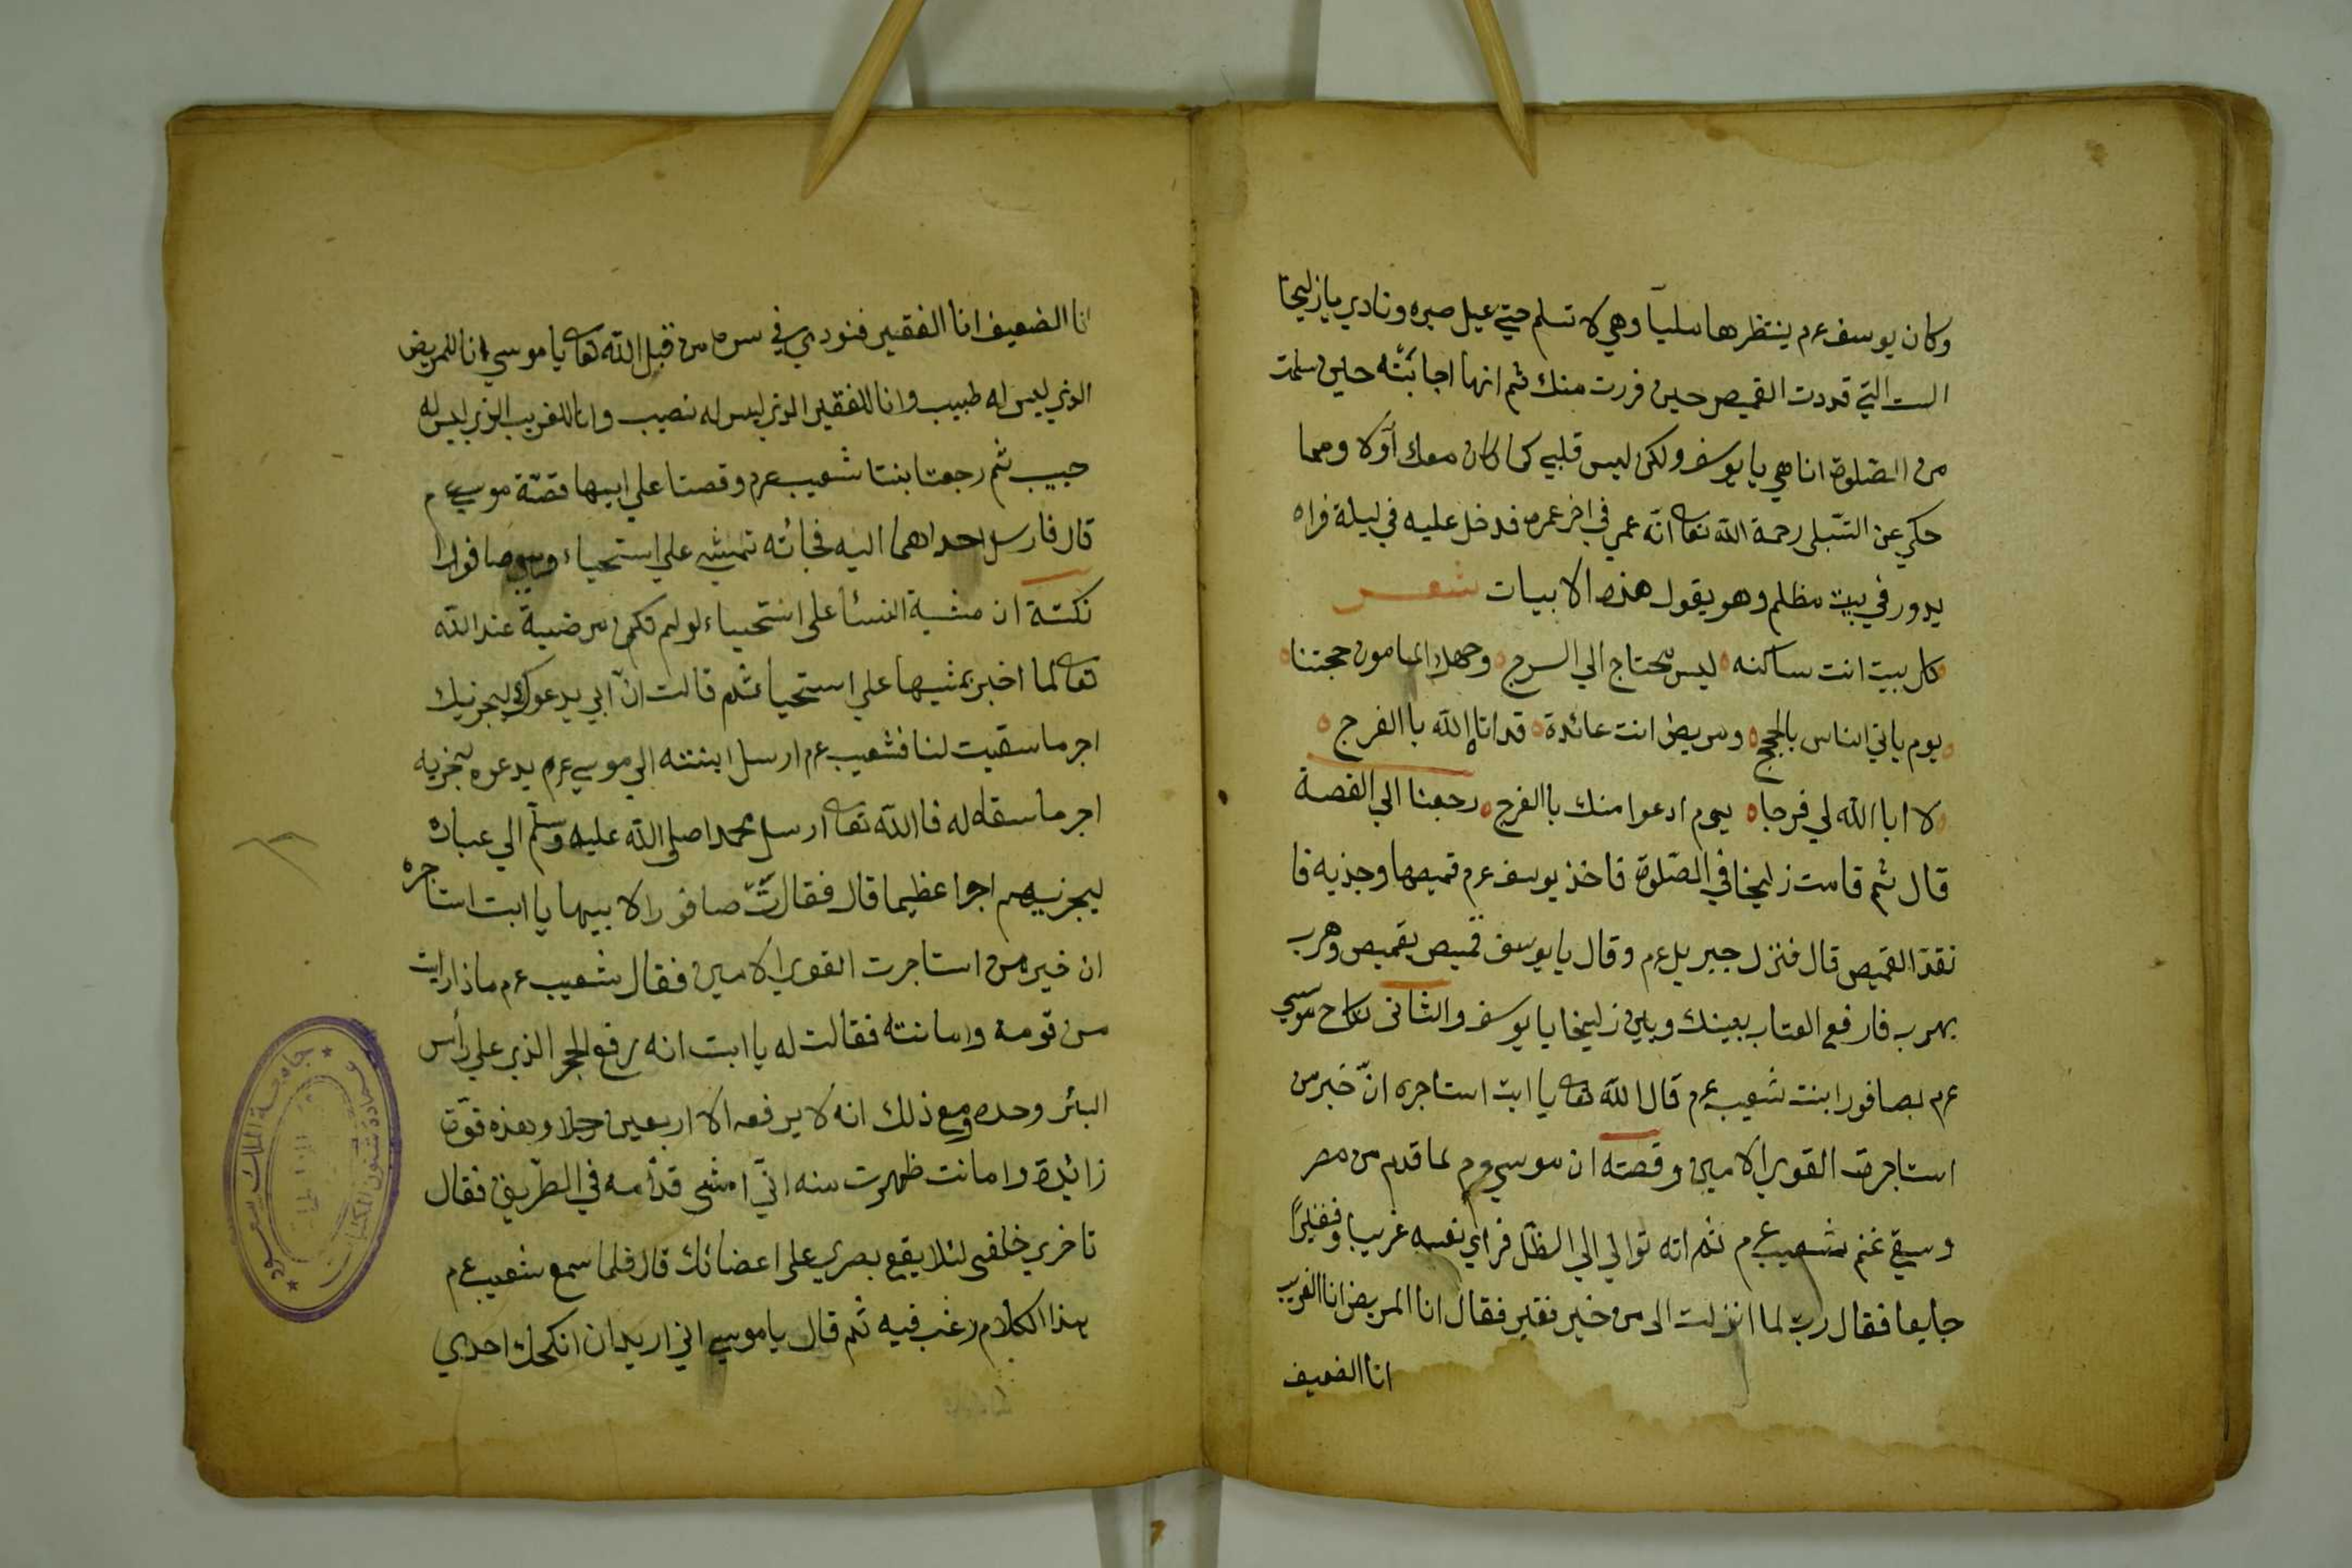 وكان يوسف عم ينتظرها مليا وهي لا تسلم حتي عيل صبره ونادي يا زليخا
الست التي قددت القميص حين فررت منك ثم انها اجابته حين سلمت
من الصلوة انا هي يا يوسف ولكن ليس قلبي كما كان معك اولا ومما
حكي عن الشبلي رحمة الله تعا انه عمي في اخر عمره فدخل عليه في ليلة فراه
يدور في بيت مظلم وهو يقول هذه الابيات شعر
كل بيت انت ساكنه ليس محتاج الي السرج وجهك المامون حجتنا
يوم ياتي الناس بالحجج ومريض انت عائدة قد اتاه الله با الفرج
لا ابا الله لي فرجا يوم ادعوا منك با الفرج رجعنا الي القصة
قال ثم قامت زليخا في الصلوة فاخذ يوسف عم قميصها وجذبه فا
نقد القميص قال فنزل جبريل عم وقال يا يوسف قميص بقميص وهرب
بهرب فارفع العتاب بينك وبين زليخا يا يوسف والثاني نكاح موسي
عم بصافورا بنت شعيب عم قال الله تعا يا ابت استاجره ان خير من
استاجرت القوي الامين وقصته ان موسي عم لما قدم من مصر
وسقي غنم شعيب عم ثم انه توالي الي الظل فراي نفسه غريبا وفقيرا
جايعا فقال رب لما انزلت الى من خير فقير فقال انا المريض انا الغريب
انا الضعيف
انا الضعيف انا الفقير فنودي في سره من قبل الله تعا يا موسي انا للمريض
الذي ليس له طبيب وانا للفقير الذي ليس له نصيب وانا للغريب الذي ليس له
حبيب ثم رجعتا بنتا شعيب عم وقصتا علي ابيها قصة موسي عم
قال فارسل احداهما اليه فجائته تمشي علي استحياء وهي صافورا
نكتة ان مشية النسا على استحياء لو لم تكن مرضية عند الله
تعا لما اخبر بمشيها علي استحيا ثم قالت ان ابي يدعوك ليجزيك
اجر ما سقيت لنا فشعيب عم ارسل ابنته الي موسي عم يدعوه ليجزيه
اجر ما سقاه له فا الله تعا ارسل محمدا صلى الله عليه وسلم الي عباده
ليجزيهم اجرا عظيما قال فقالت صافورا لابيها يا ابت استاجره
ان خير من استاجرت القوي الامين فقال شعيب عم ماذا رايت
من قومة وامانته فقالت له يا ابت انه رفع الحجر الذي علي رأس
البئر وحده ومع ذلك انه لا يرفعه الا اربعين رجلا وهذه قوة
زائدة وامانت ظهرت منه اني امشى قدامه في الطريق فقال
تاخري خلفى لئلا يقع بصري على اعضائك قال فلما سمع شعيب عم
بهذا الكلام رغب فيه ثم قال يا موسي اني اريد ان انكحك احدي
جامعة الملك سعود
عمادة شئون المكتبات